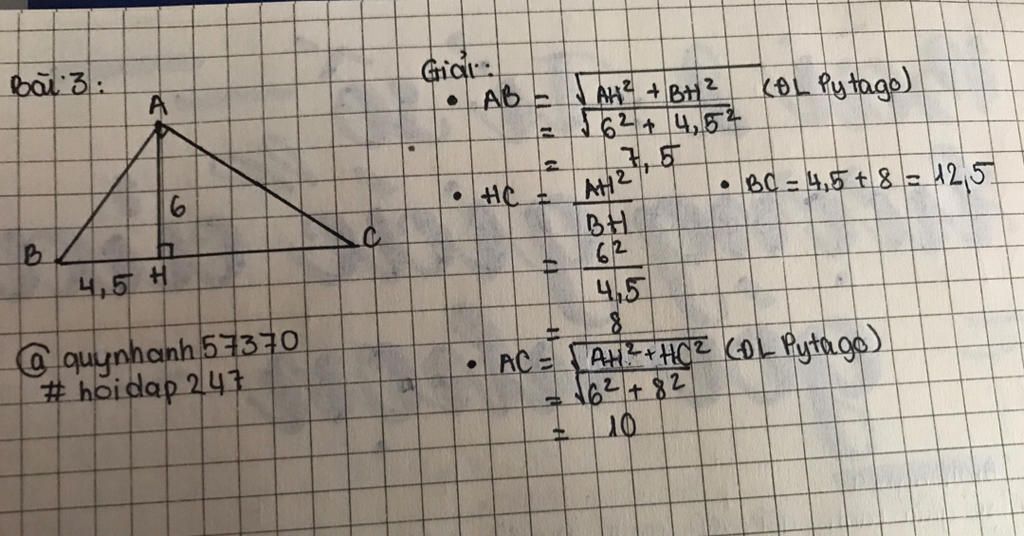 Bài 3:
A
6
B
C
4,5 H
@ quynhanh57370
# hoidap247
Giải:
• AB = √AH² + BH² (ĐL Pytago)
= √6² + 4,5²
= 7,5
• HC = AH²/BH
= 6²/4,5
= 8
• BC = 4,5 + 8 = 12,5
• AC = √AH² + HC² (ĐL Pytago)
= √6² + 8²
= 10